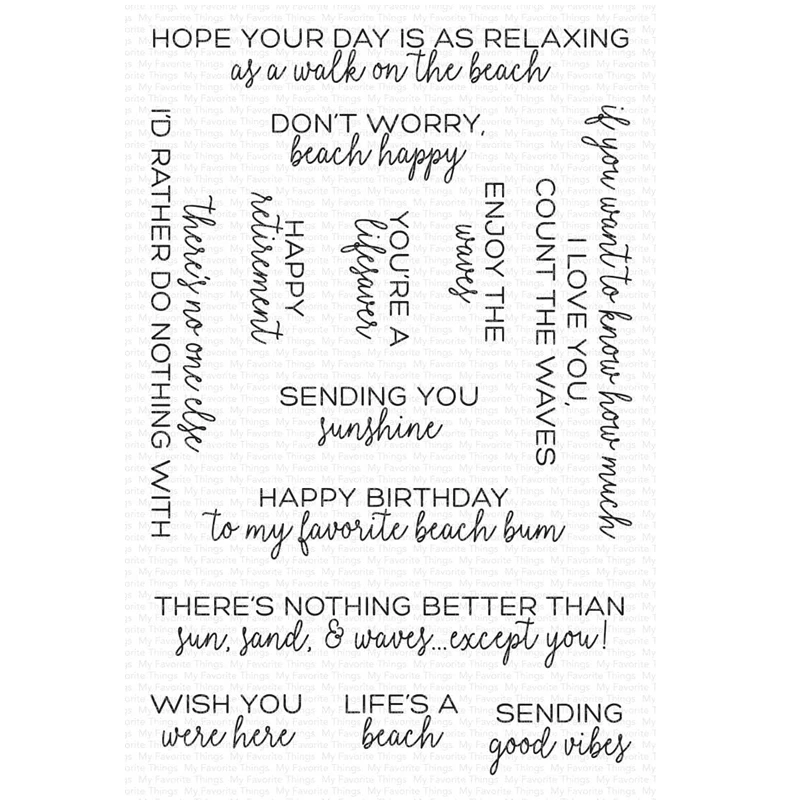 HOPE YOUR DAY IS AS RELAXING
as a walk on the beach
DON'T WORRY,
beach happy
there's no one else
I'D RATHER DO NOTHING WITH
HAPPY
retirement
YOU'RE A
lifesaver
ENJOY THE
waves
if you want to know how much
I LOVE YOU,
COUNT THE WAVES
SENDING YOU
sunshine
HAPPY BIRTHDAY
to my favorite beach bum
THERE'S NOTHING BETTER THAN
sun, sand, & waves...except you!
WISH YOU
were here
LIFE'S A
beach
SENDING
good vibes
My Favorite Things